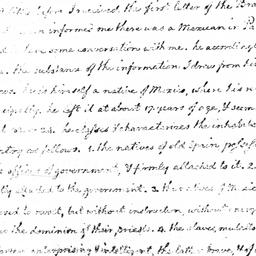 before I received the first letter of the Bra
informed me there was a Mexican in Pa
have some conversation with me. he accordingly
the substance of the information I drew from hi
himself a native of Mexico, where his r
he left it at about 17. years of age, & seem
he classes & characterizes the inhabita
as follows. 1. the natives of old Spain, posses
offices of government, & firmly attached to it. 2.
to the government. 3. the natives of Mexic
to revolt, but without instruction, without energ
the dominion of their priests. 4. the slaves, mulatto
enterprising & intelligent, the latter brave, & of